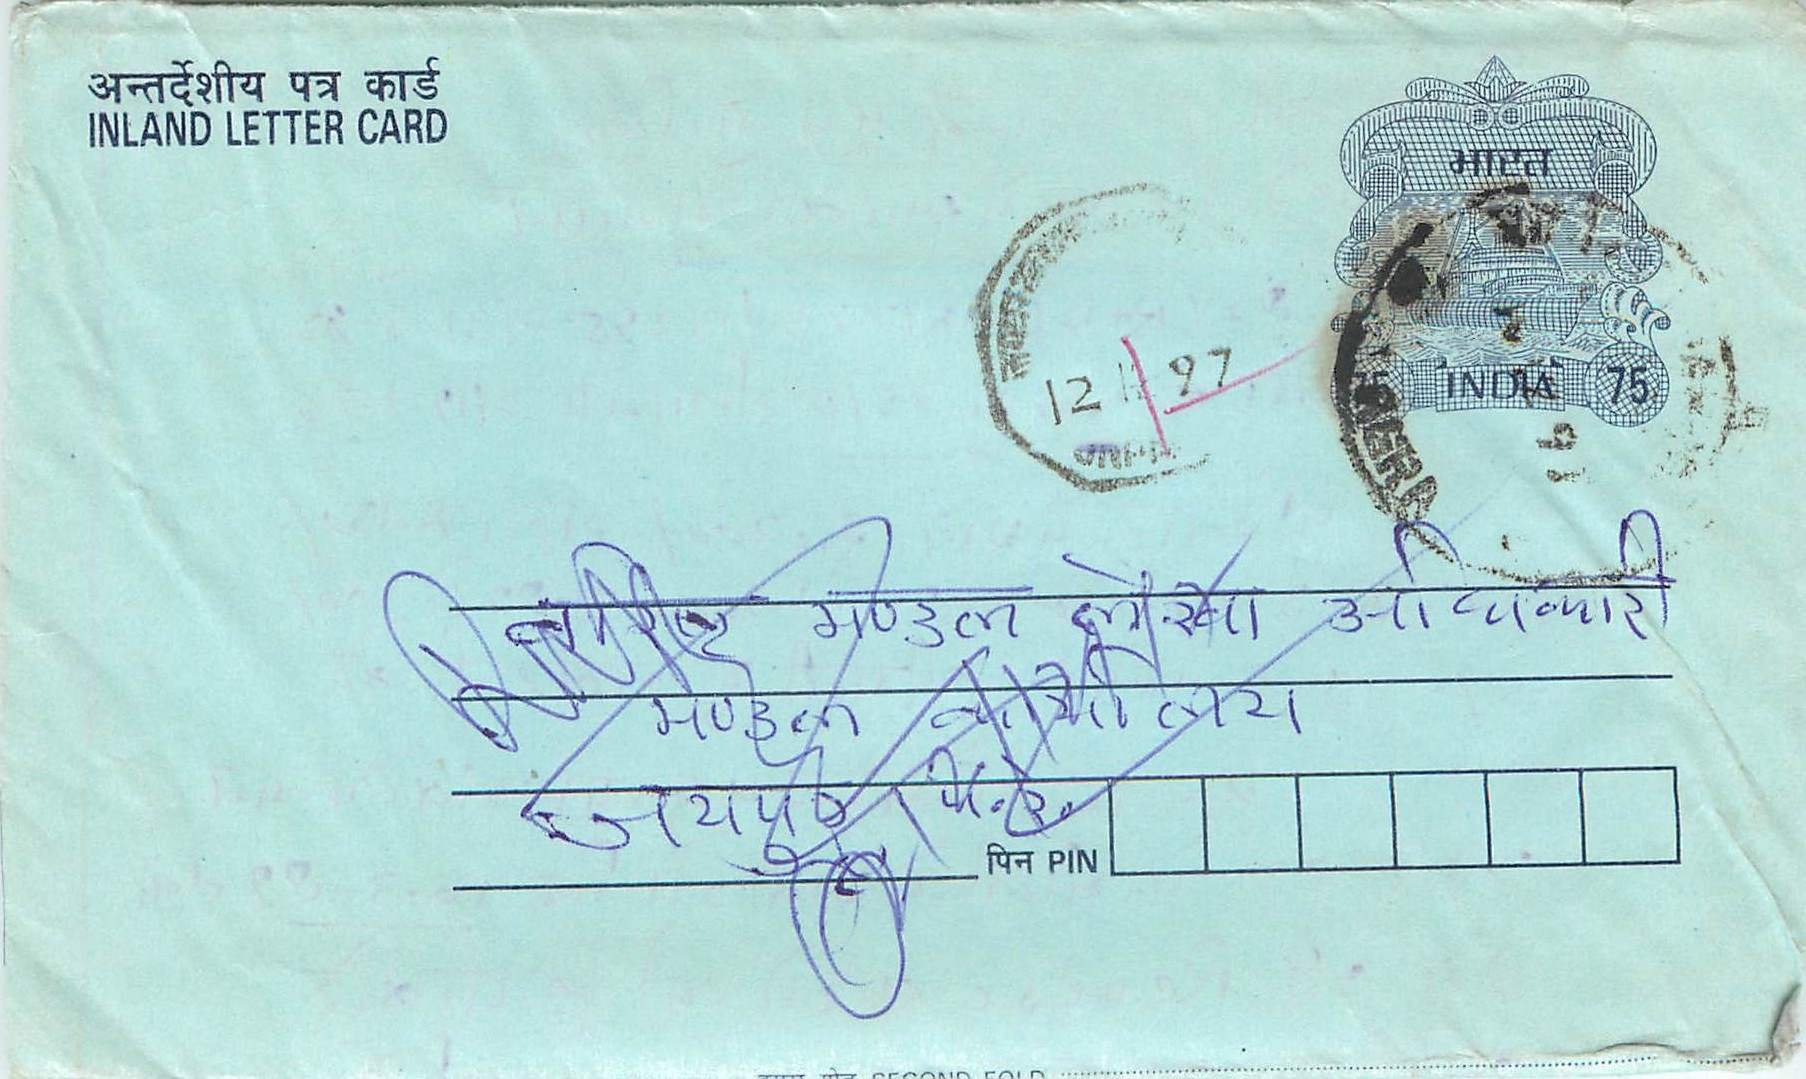 अन्तर्देशीय पत्र कार्ड
INLAND LETTER CARD
भारत
75 INDIA 75
12 97
मण्डल लेखा अधिकारी
मण्डल कार्यालय
जयपुर प.रे.
पिन PIN
SECOND FOLD